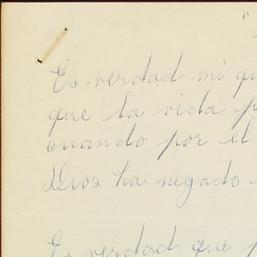 Es verdad mi qu
que la vida p
cuando por el
Dios ha negado
Es verdad que